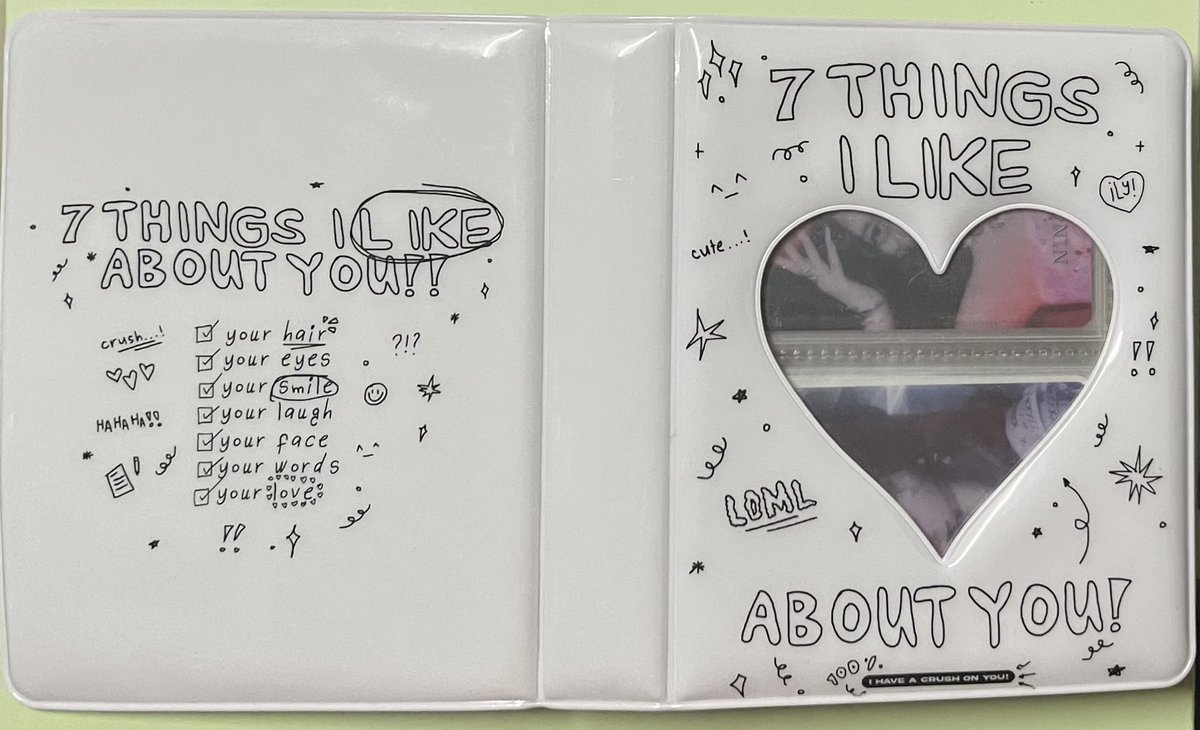 7 THINGS I LIKE
ABOUT YOU!!
crush...!
your hair
your eyes
?!?
your smile
your laugh
HAHAHA!!
your face
^_^
your words
your love
!!
7 THINGS
I LIKE
^_^
iLy!
cute...!
!!
LOML
ABOUT YOU!
100%
I HAVE A CRUSH ON YOU!